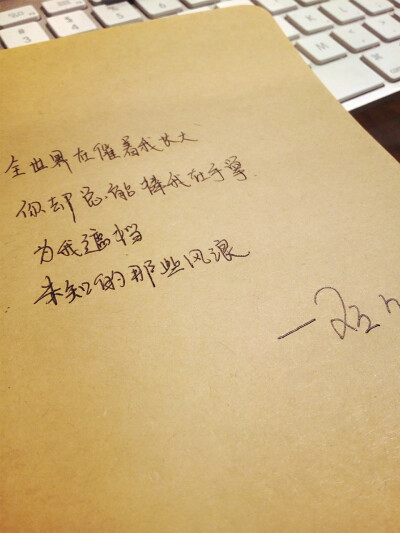 #
3
$
4
K
L
M
全世界在催着我长大
你却总能捧我在手掌
为我遮挡
未知的那些风浪